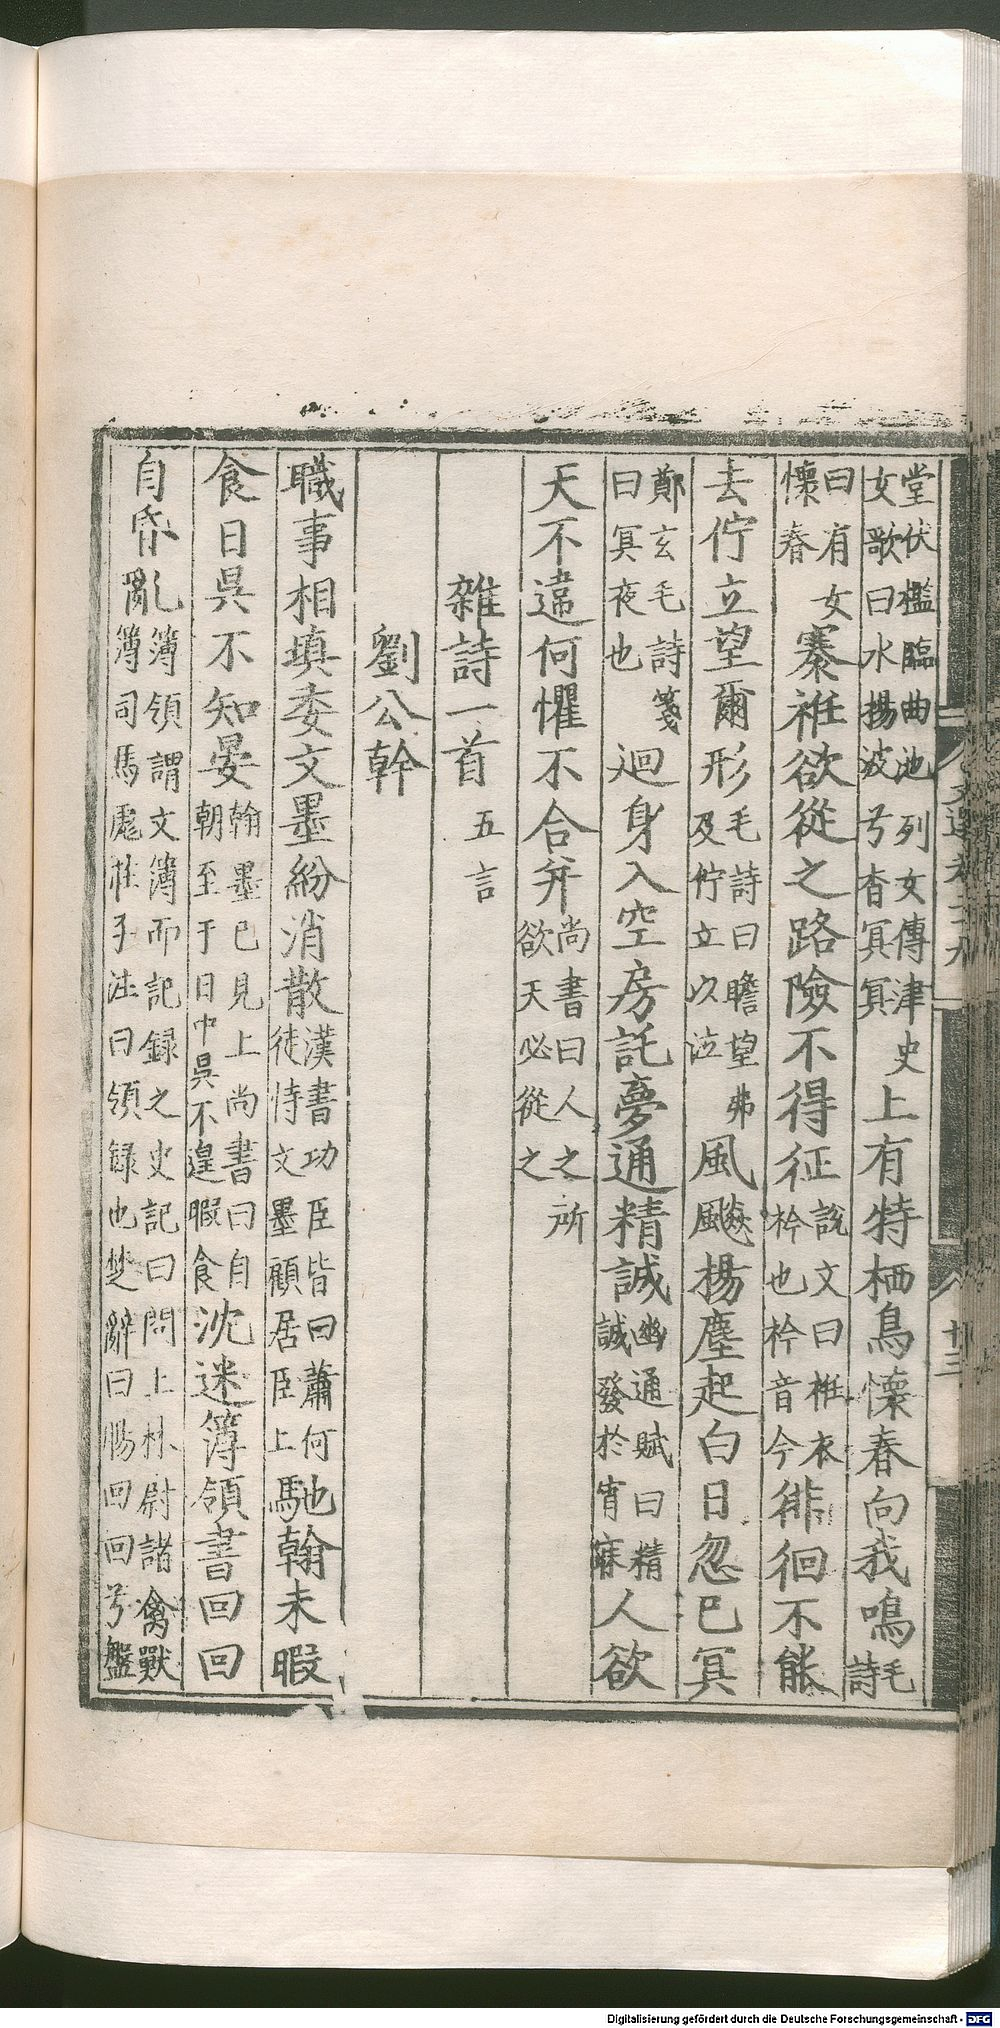 堂伏檻臨曲池列女傳津史
女歌曰水揚波兮杳冥冥
上有特栖鳥懷春向我鳴
毛
詩
曰有女
懷春
褰袵欲從之路險不得征
說文曰袵衣
衿也衿音今
徘徊不能
去佇立望爾形
毛詩曰瞻望弗
及佇立以泣
風飈揚塵起白日忽已冥
鄭玄毛詩箋
曰冥夜也
迴身入空房託夢通精誠
幽通賦曰精
誠發於宵寐
人欲
天不違何懼不合并
尚書曰人之所
欲天必從之
雜詩一首
五言
劉公幹
職事相填委文墨紛消散
漢書功臣皆曰蕭何
徒恃文墨顧居臣上
馳翰未暇
食日昃不知晏
翰墨已見上尚書曰自
朝至于日中昃不遑暇食
沈迷簿領書回回
自昏亂
簿領謂文簿而記録之史記曰問上林尉諸禽獸
簿司馬彪莊子注曰領録也楚辭曰腸回回兮盤
文選卷二九
廿三
Digitalisierung gefördert durch die Deutsche Forschungsgemeinschaft - DFG